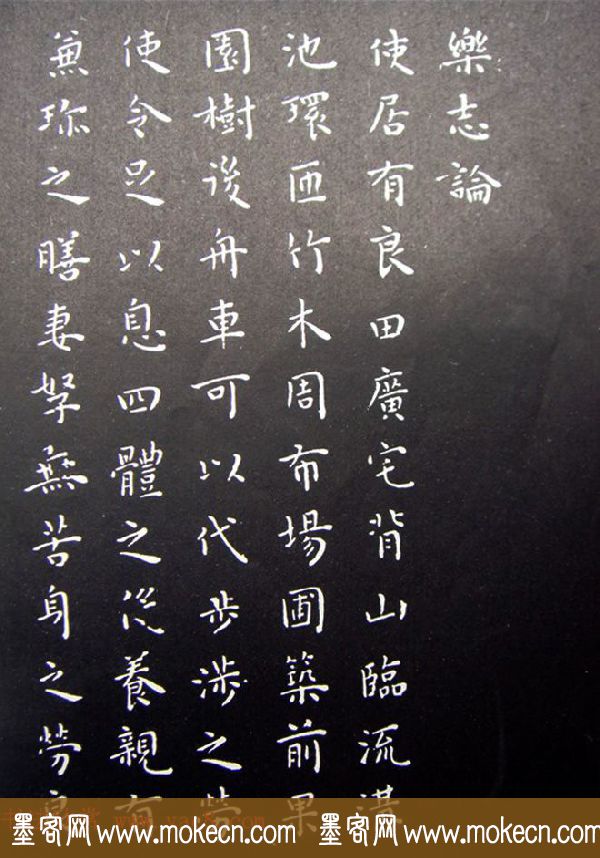 樂志論
使居有良田廣宅背山臨流溝
池環匝竹木周布場圃築前果
園樹後舟車可以代步涉之
使令足以息四體之役養親有
兼珍之膳妻孥無苦身之勞
墨客网 www.mokecn.com 墨客网 www.mokecn.com